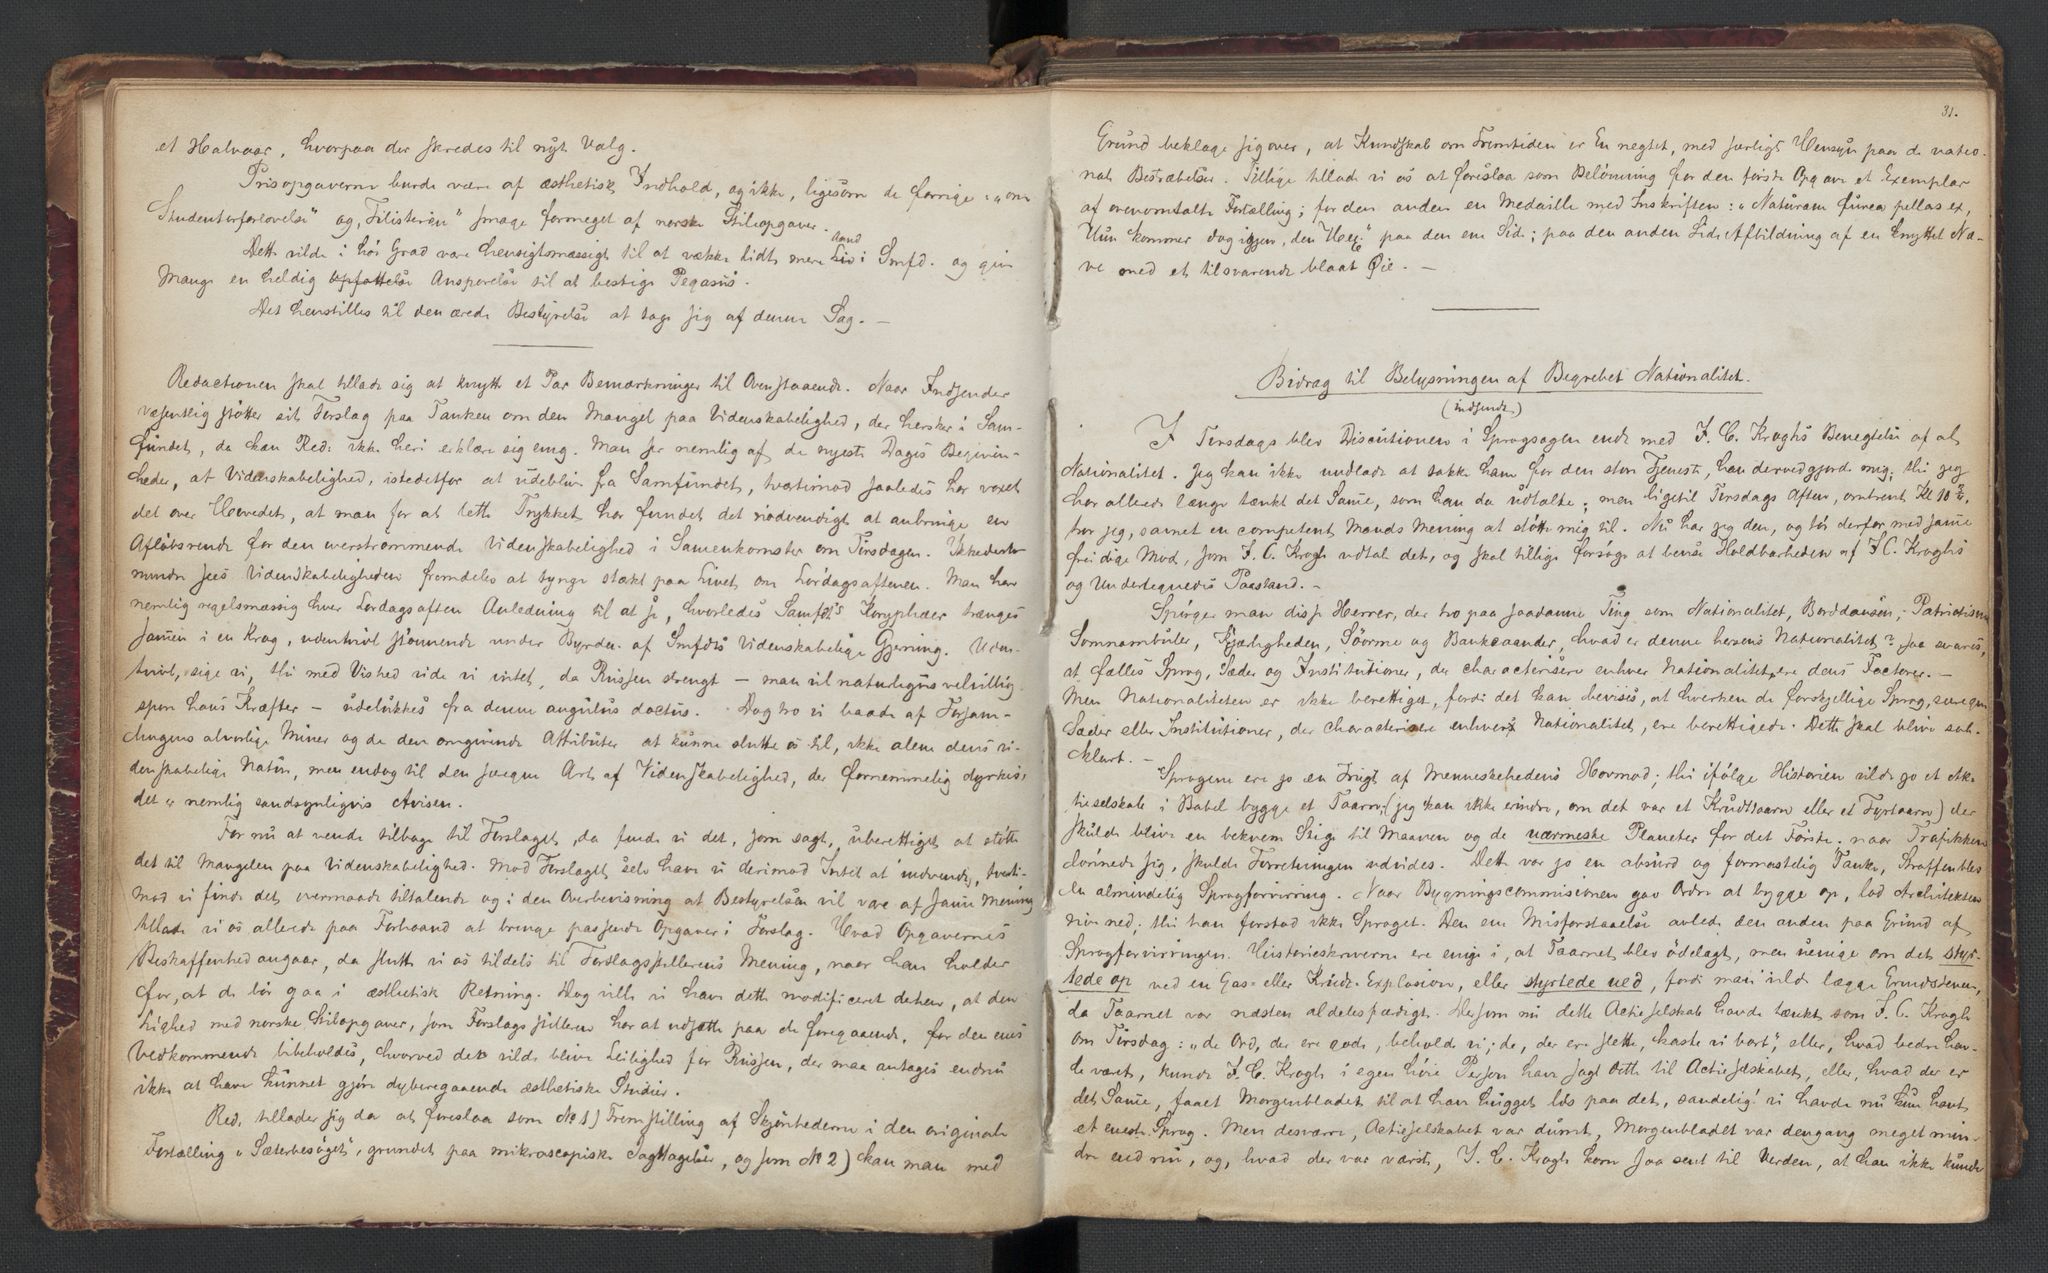 et Halvaar, hvorpaa der skredes til nyt Valg.
Prisopgaverne burde være af æsthetisk Indhold, og ikke, ligesom de forrige: „om
Studenterforlovelse" og „Filisterien" smage formeget af norske Stilopgaver.
Dette vilde i høi Grad være hensigtsmæssigt til at vække lidt mere Liv Aand i Smfd. og give
Mange en heldig opfattelse Ansporelse til at bestige Pegasus.
Det henstilles til den ærede Bestyrelse at tage sig af denne Sag. —
Redactionen skal tillade sig at knytte et Par Bemærkninger til Ovenstaaende. Naar Indsender
væsentlig støtter sit Forslag paa Tanken om den Mangel paa Videnskabelighed, der hersker i Sam-
fundet, da kan Red. ikke heri erklære sig enig. Man ser nemlig af de nyeste Dages Begiven-
heder, at Videnskabelighed, istedetfor at udeblive fra Samfundet, tvertimod saaledes har voxet
det over Hovedet, at man for at lette Trykket har fundet det nødvendigt at anbringe en
Afløbsrende for den overstrømmende Videnskabelighed i Samenkomster om Tirsdagen. Ikkedesto-
mindre sees Videnskabeligheden fremdeles at tynge stærkt paa Livet om Lørdagsaftenen. Man har
nemlig regelsmæssig hver Lørdagsaften Anledning til at se, hvorledes Samfdts Koryphæer trænges
samen i en Krog, udentvivl stønnende under Byrden af Smfdts Videnskabelige Gjerning. Uden-
tvivl, sige vi, thi med Vished vide vi intet, da Russen strengt — man vil naturligvis velvillig
spare hans Kræfter — udelukkes fra denne angulus doctus. Dog tro vi baade af Forsam-
lingens alvorlige Miner og de den omgivende Attributer at kunne slutte os til, ikke alene dens vi-
denskabelige Natur, men endog til den særegne Art af Videnskabelighed, der fornemmelig dyrkes;
det er nemlig sandsynligvis Avisen.
For nu at vende tilbage til Forslaget, da finde vi det, som sagt, uberettiget at støtte
det til Mangelen paa Videnskabelighed. Mod Forslaget selv have vi derimod Intet at indvende, tverti-
mod vi finde det overmaade tiltalende og i den Overbevisning at Bestyrelsen vil være af samme Mening
tillade vi os allerede paa Forhaand at bringe passende Opgaver i Forslag. Hvad Opgavernes
Beskaffenhed angaar, da slutte vi os tildels til Forslagsstillerens Mening, naar han holder
for, at de bør gaa i æsthetisk Retning. Dog ville vi have dette modificeret derhen, at den
Lighed med norske Stilopgaver, som Forslagsstilleren har at udsætte paa de foregaaende, for den enes
Vedkommende bibeholdes, hvorved der vilde blive Leilighed for Russen, der maa antages endnu
ikke at have kunnet gjøre dyberegaaende æsthetiske Studier.
Red. tillader sig da at foreslaa som No 1) Fremstilling af Skjønhederne i den originale
Fortælling „Sæterbesøget", grundet paa mikroscopiske Iagttagelser, og som No 2) Kan man med
31.
Grund beklage sig over, at Kundskab om Fremtiden er En negtet, med særligt Hensyn paa de natio-
nale Bestræbelser. Tillige tillade vi os at foreslaa som Belønning for den første Opgave et Exemplar
af ovenomtalte Fortælling; for den anden en Medaille med Inskriften: „Naturam furca pellas ex,
Hun kommer dog igjen, den Hex" paa den ene Side; paa den anden Side Afbildning af en knyttet Næ-
ve med et tilsvarende blaat Øie. —
Bidrag til Belysningen af Begrebet Nationalitet.
(indsendt)
I Tirsdags blev Discutionen i Sprogsagen endt med F. C. Kroghs Benegtelse af al
Nationalitet. Jeg kan ikke undlade at takke ham for den store Tjeneste, han derved gjorde mig; thi jeg
har allerede længe tænkt det Samme, som han da udtalte; men ligetil Tirsdags Aften, omtrent Kl 10½,
har jeg savnet en competent Mands Mening at støtte mig til. Nu har jeg den, og tør derfor med samme
freidige Mod, som F. C. Krogh udtale det, og skal tillige forsøge at bevise Holdbarheden af F. C. Kroghs
og Undertegnedes Paastand. —
Spørger man disse Herrer, der tro paa saadanne Ting som Nationalitet, Borddansen, Patriotisme
Somnambuler, Kjærligheden, Søorme og Bankeaander, hvad er denne herens Nationalitet? saa svares,
at fælles Sprog, Sæder og Institutioner, der characterisere enhver Nationalitet, ere dens Factorer. —
Men Nationaliteten er ikke berettiget, fordi det kan bevises, at hverken de forskjellige Sprog, særegne
Sæder eller Institutioner, der characterisere enhver Nationalitet, ere berettigede. Dette skal blive sol-
klart. —
Sprogene ere jo en Frugt af Menneskehedens Hovmod; thi ifølge Historien vilde jo et Ak-
tieselskab i Babel bygge et Taarn, (jeg kan ikke erindre, om det var et Krudttaarn eller et Fyrtaarn) der
skulde blive en bekvem Stige til Maanen og de nærmeste Planeter for det Første. naar Trafikken
lønnede sig, skulde Forretningen udvides. Dette var jo en absurd og formastelig Tanke, Straffen blev
en almindelig Sprogforvirring. Naar Bygningscommisionen gav Ordre at bygge op, lod Architekten
rive ned; thi han forstod ikke Sproget. Den ene Misforstaaelse avlede den anden paa Grund af
Sprogforvirringen. Historieskriverne ere enige i, at Taarnet blev ødelagt, men uenige om det styr-
tede op ved en Gas- eller Krudt-Explosion, eller styrtede ned, fordi man vilde lægge Grundstenen,
da Taarnet var næsten aldeles færdigt. Dersom nu dette Actieselskab havde tænkt som F. C. Krogh
om Tirsdag: „de Ord, der ere gode, beholde vi; de, der ere slette, kaste vi bort", eller, hvad bedre hav-
de været, kunde F. C. Krogh i egen høie Person have sagt dette til Actieselskabet, eller, hvad der er
det Samme, faaet Morgenbladet til at have hugget løs paa det, sandelig! vi havde nu kun havt
et eneste Sprog. Men desværre, Actieselskabet var dumt, Morgenbladet var dengang meget min-
dre end nu, og, hvad der var værst, F. C. Krogh kom saa sent til Verden, at han ikke kunde